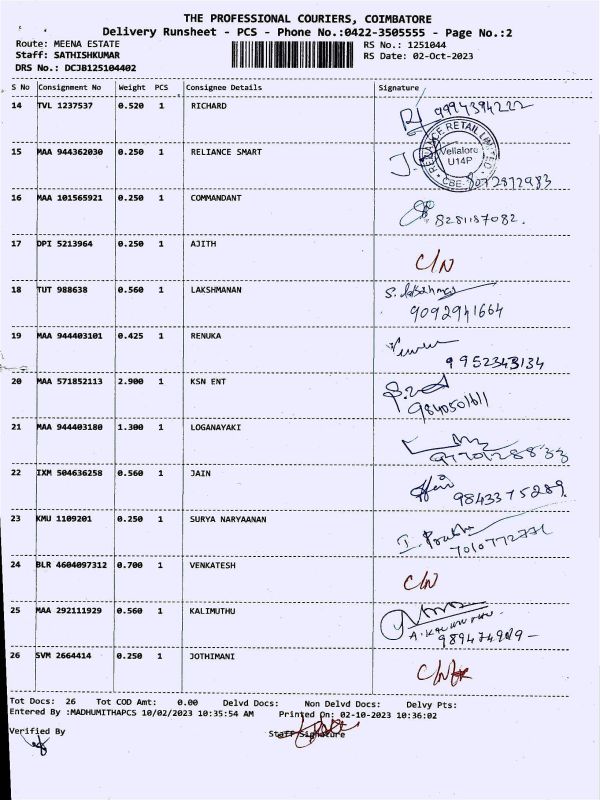 THE PROFESSIONAL COURIERS, COIMBATORE
Delivery Runsheet - PCS - Phone No.:0422-3505555 - Page No.:2
Route: MEENA ESTATE RS No.: 1251044
Staff: SATHISHKUMAR RS Date: 02-Oct-2023
DRS No.: DCJB125104402
S No Consignment No Weight PCS Consignee Details Signature
14 TVL 1237537 0.520 1 RICHARD 9994394222
15 MAA 944362030 0.250 1 RELIANCE SMART
RELIANCE RETAIL LIMITED
Vellalore
U14P
CBE
8072872983
16 MAA 101565921 0.250 1 COMMANDANT 8281187082.
17 DPI 5213964 0.250 1 AJITH C/N
18 TUT 988638 0.560 1 LAKSHMANAN
9092941664
19 MAA 944403101 0.425 1 RENUKA
9952343134
20 MAA 571852113 2.900 1 KSN ENT
9840501611
21 MAA 944403180 1.300 1 LOGANAYAKI
22 IXM 504636258 0.560 1 JAIN
9843375289
23 KMU 1109201 0.250 1 SURYA NARYAANAN
I. Prabhu
24 BLR 4604097312 0.700 1 VENKATESH C/N
25 MAA 292111929 0.560 1 KALIMUTHU
26 SVM 2664414 0.250 1 JOTHIMANI C/N
Tot Docs: 26 Tot COD Amt: 0.00 Delvd Docs: Non Delvd Docs: Delvy Pts:
Entered By :MADHUMITHAPCS 10/02/2023 10:35:54 AM Printed On: 02-10-2023 10:36:02
Verified By Staff Signature